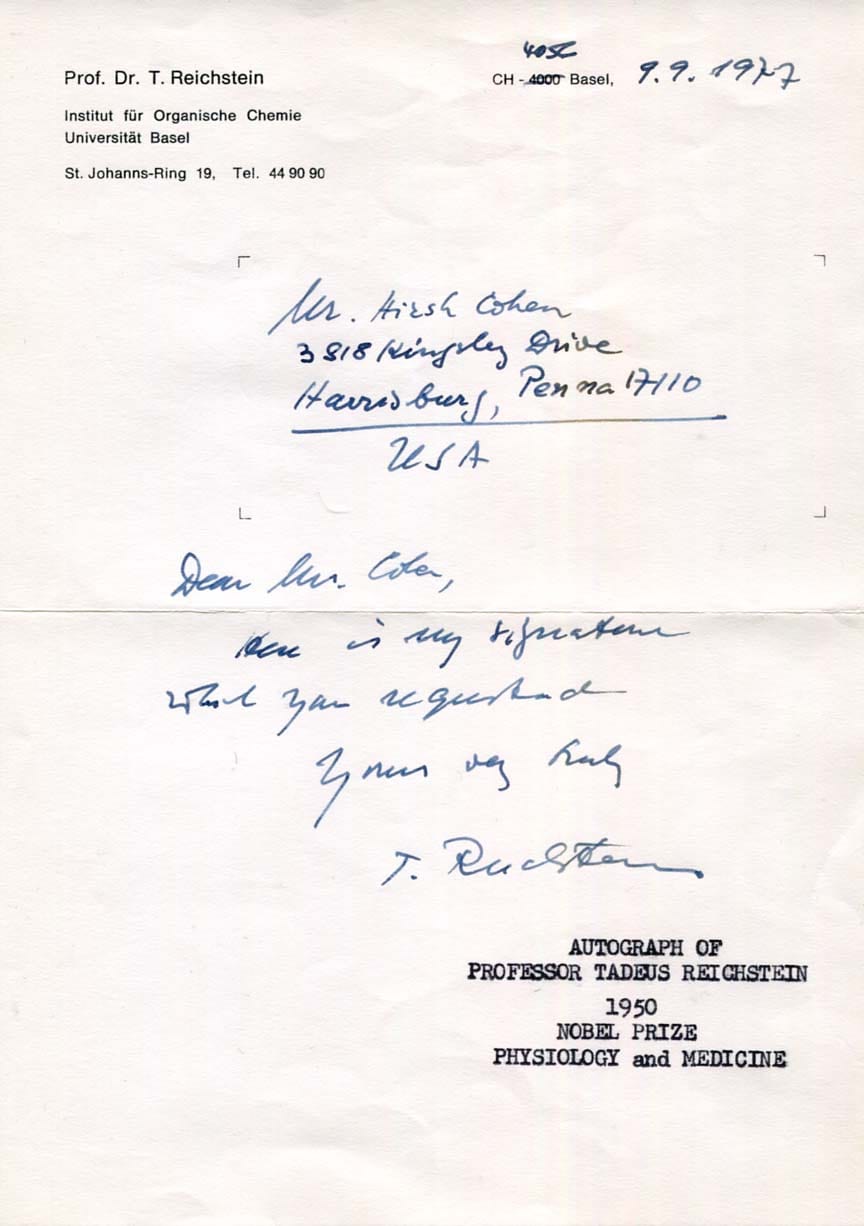 Prof. Dr. T. Reichstein
Institut für Organische Chemie
Universität Basel
St. Johanns-Ring 19, Tel. 44 90 90
4056
CH - 4000 Basel, 9.9.1977
Mr. Hirsh Cohen
3818 Kingsley Drive
Harrisburg, Penna 17110
USA
Dear Mr. Cohen,
Here is my signature
which you requested
Yours very truly
T. Reichstein
AUTOGRAPH OF
PROFESSOR TADEUS REICHSTEIN
1950
NOBEL PRIZE
PHYSIOLOGY and MEDICINE